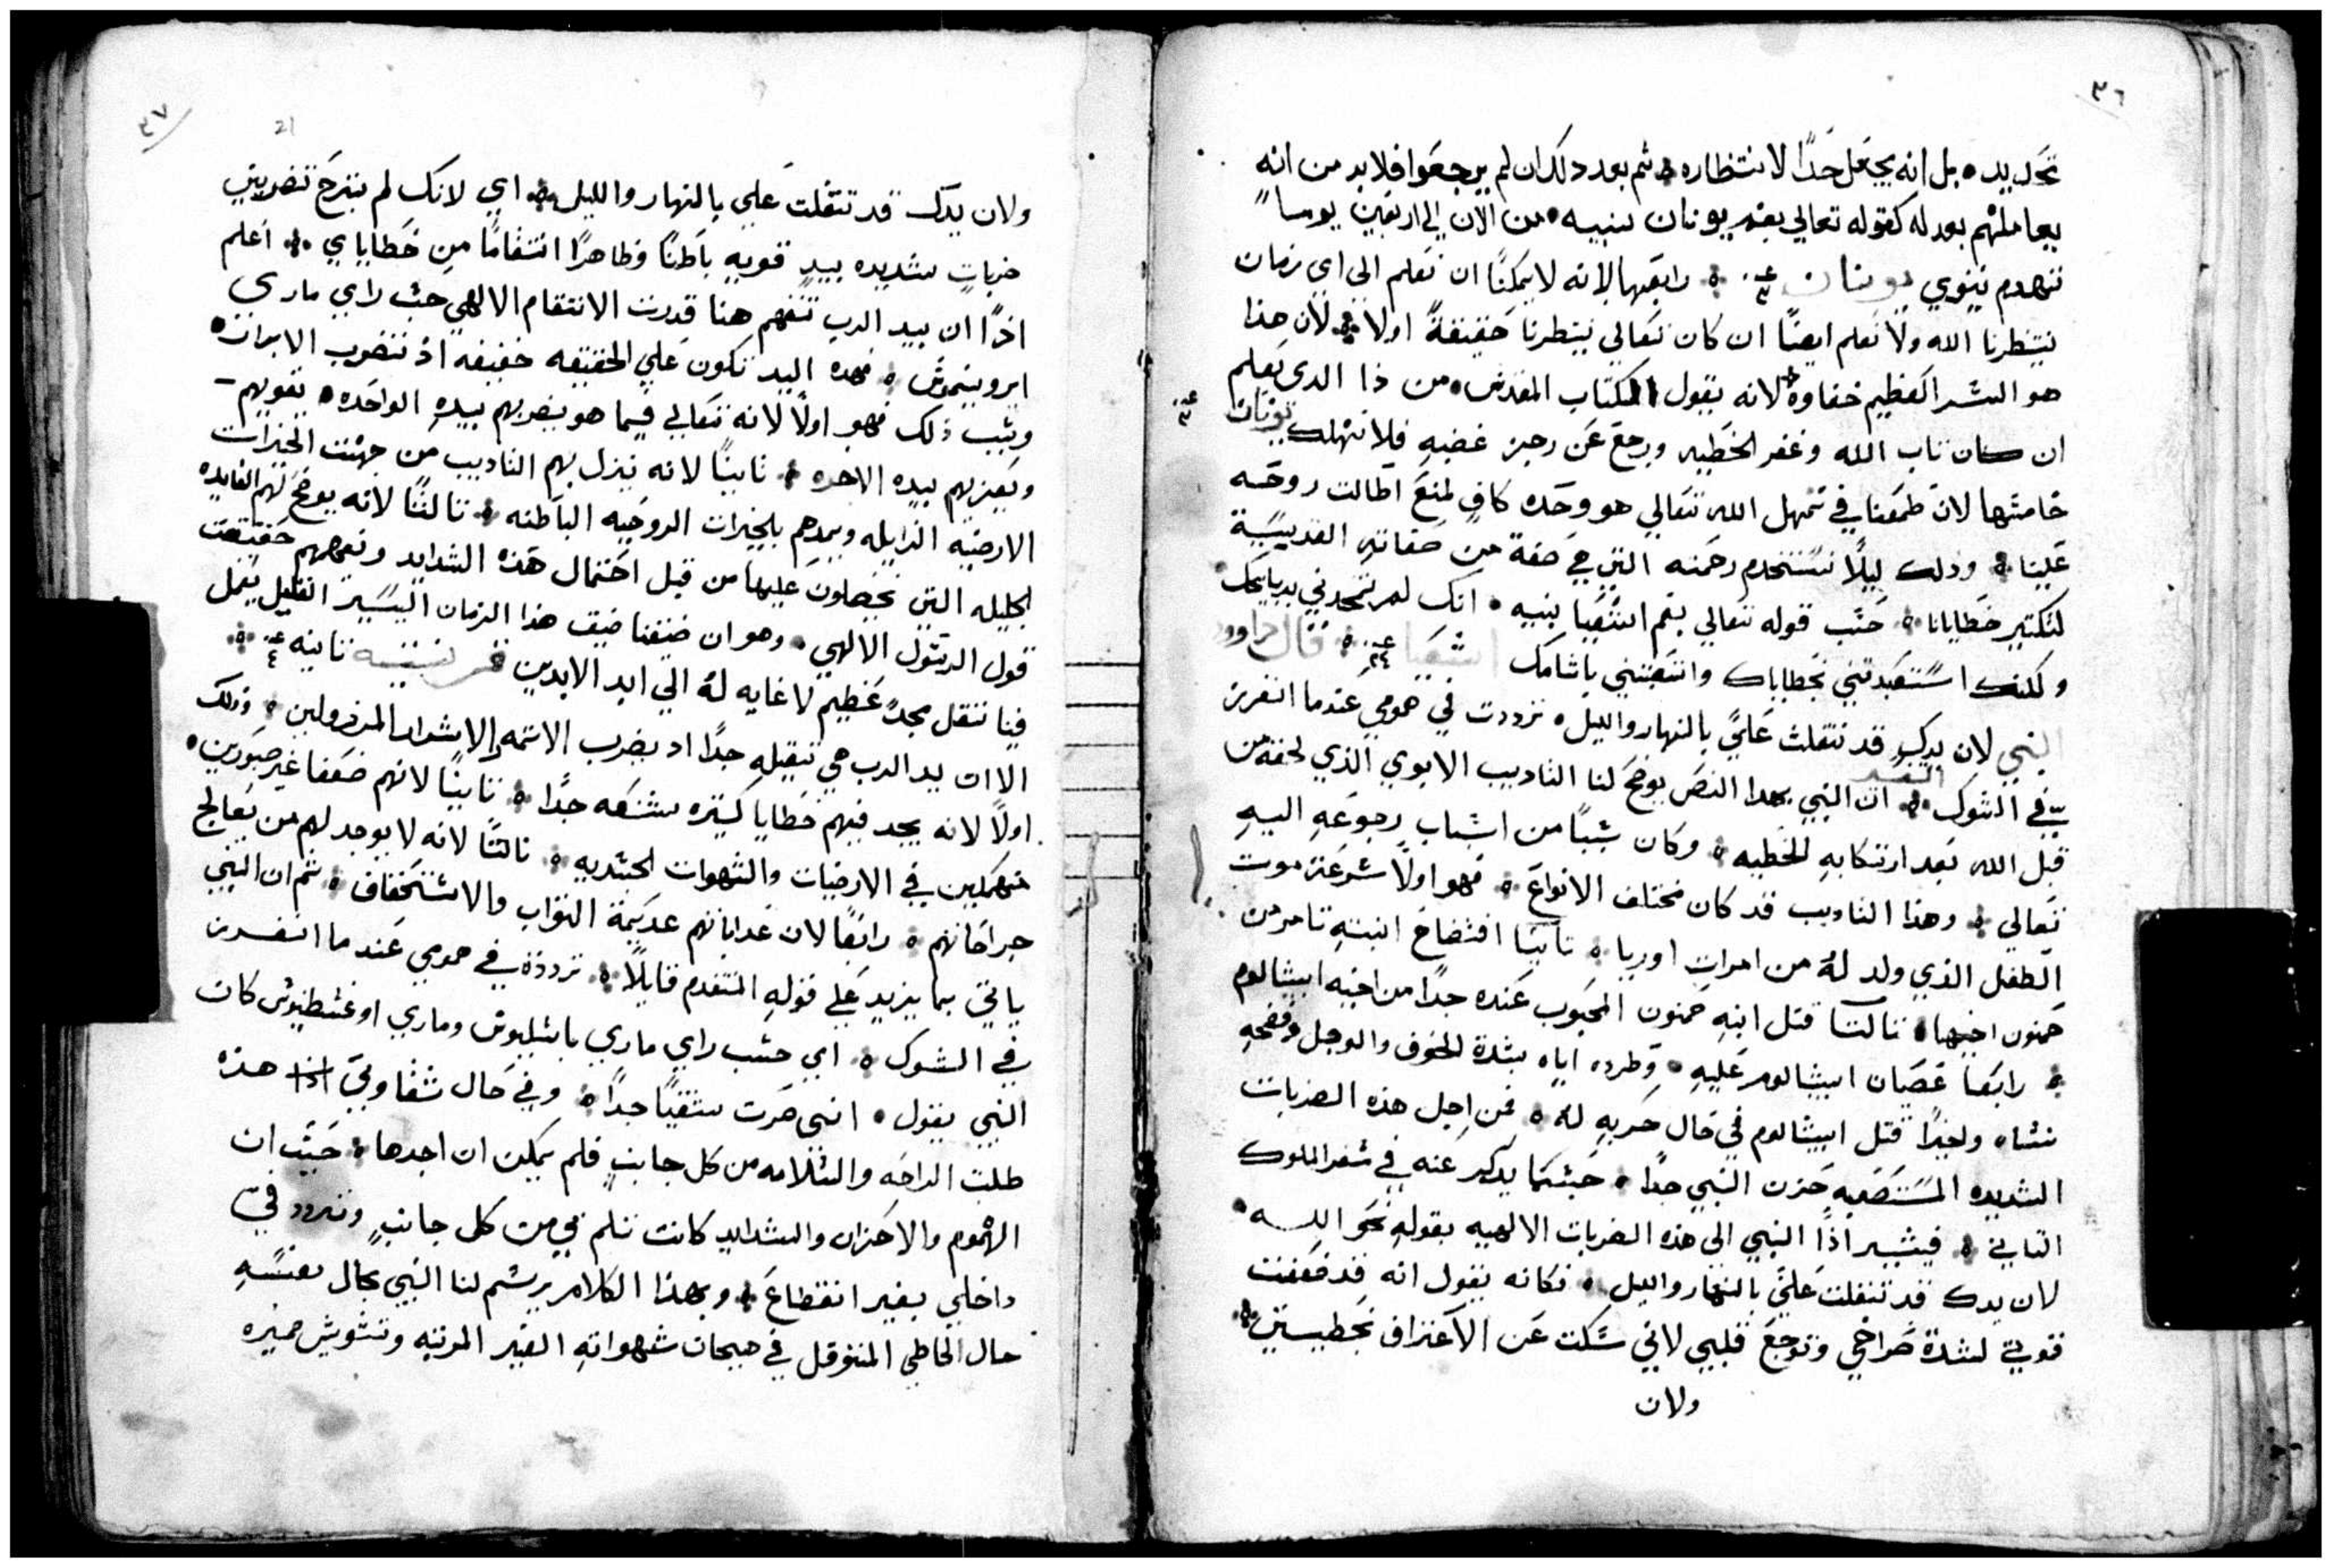 ٣٦
تحديد • بل انه يجعل حدًا لانتظاره ثم بعد دلك ان لم يرجعوا فلابد من انه
يعاملهم بعدله كقوله تعالي بفم يونان نبيه • من الان الي اربعين يوما
تنهدم نينوي يونان ع٣ رابعها لانه لا يمكننا ان نعلم الى اي زمان
ينتظرنا الله ولا نعلم ايضًا ان كان تعالي ينتظرنا حقيقةً اولا لان هذا
هو السر العظيم خفاوه لانه يقول الكتاب المقدس • من ذا الدى يعلم
ان كان تاب الله وغفر الخطيه ورجع عن رجز غضبه فلا نهلك يونان ع٣
خامسها لان طمعنا في تمهل الله تعالي هو وحده كافٍ لمنع اطالت روحه
علينا وذلك ليلًا نستخدم رحمته التي هي صفة من صفاته القديسية
لتكتير خطايانا حسب قوله تعالي بفم اشعيا نبيه • انك لم تمجدني بدبايحك
ولكنك استعبدتني بخطاياك واتعبتني باتامك اشعيا ع٤٣ قال داوود
النبي لان يدك قد تتقلت عليَّ بالنهار والليل • ترددت في همومي عندما انغرز
فيَّ الشوك التفسير ان النبي بهدا النص يوضح لنا التاديب الابوي الذي لحقه من
قبل الله بعد ارتكابه الخطيه وكان شيًا من اسباب رجوعه اليه
تعالي وهذا التاديب قد كان مختلف الانواع فهو اولًا سرعة موت
الطفل الذي ولد له من امرات اوريا تانيًا افتضاح ابنته تامر من
حمنون اخيها تالتا قتل ابنه حمنون المحبوب عنده جدًا من اخيه ابيشالوم
رابعا عصيان ابيشالوم عليه • وطرده اياه بشدة الخوف والوجل وفضحه
نساه واخيرًا قتل ابيشالوم في حال حربه له فمن اجل هذه الضربات
الشديده المستصعبه حزن النبي جدًا حسبما يدكر عنه في سفر الملوك
التاني فيشير اذًا النبي الي هذه الضربات الالهيه بقوله نحو الله •
لان يدك قد تتقلت عليَّ بالنهار والليل فكانه يقول انه قد ضعفت
قوتي لشدة صراخي وتوجع قلبي لاني سكت عن الاعتراف بخطيتي
ولان
٣٧
21
ولان يدك قد تتقلت علي بالنهار والليل اي لانك لم تبرح تضربني
ضربات شديده بيدٍ قويه باطنًا وظاهرًا انتقامًا من خطاياي اعلم
اذًا ان بيد الرب تنفهم هنا قدرت الانتقام الالهي حسب راي ماري
ايرونيموس فهده اليد تكون علي الحقيقه خفيفه اذ تنضرب الابرار •
وسبب ذلك فهو اولًا لانه تعالي فيما هو يضربهم بيدهِ الواحده • يقويهم
ويعزيهم بيده الاخره تانيًا لانه ينزل بهم التاديب من جهت الخيرات
الارضيه الزايله ويمدهم بالخيرات الروحيه الباطنه تالتًا لانه يوضح لهم الفايده
الجليله التي يحصلون عليها من قبل احتمال هذه الشدايد وتفهمهم حقيقت
قول الرسول الالهي • وهو ان ضيقنا ضيق هذا الزمان اليسير القليل يعمل
فينا تقل مجدٍ عظيم لا غايه له الي ابد الابدين قرنتيه تانيه ع٤
الا ان يد الرب هي تقيله جدًا اد يضرب الاتمه الاشرار المرذولين وذلك
اولًا لانه يجد فيهم خطايا كتيره شنعه جدًا تانيًا لانهم ضعفا غير صبورين •
منهمكين في الارضيات والشهوات الجسديه تالتًا لانه لا يوجد لهم من يعالج
جراحاتهم رابعًا لان عداباتهم عديمة التواب والاستحقاق ثم ان النبي
ياتي بما يزيد علي قوله المتقدم قايلًا ترددة في همومي عند ما انغرز
في الشوك اي حسب راي ماري باسيليوس وماري اوغسطينوس كان
النبي يقول • انني صرت شقيًا جدًا وفي حال شقاوتي هذه
طلبت الراحه والسلامه من كل جانبٍ فلم يمكن ان اجدها حيث ان
الهموم والاحزان والشدايد كانت تلم بي من كل جانبٍ وتتردد فيَّ
داخلي بغير انقطاع وبهذا الكلام يرسم لنا النبي بحال نفسه
حال الخاطي المتوقل في هيجان شهواته الغير المرتبه وتشويش ضميره